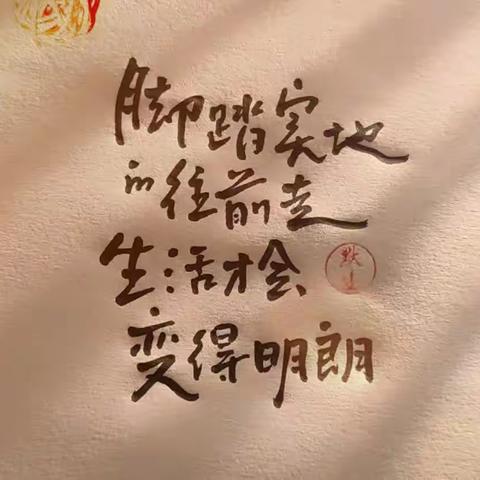 脚踏实地
的往前走
生活才会
变得明朗